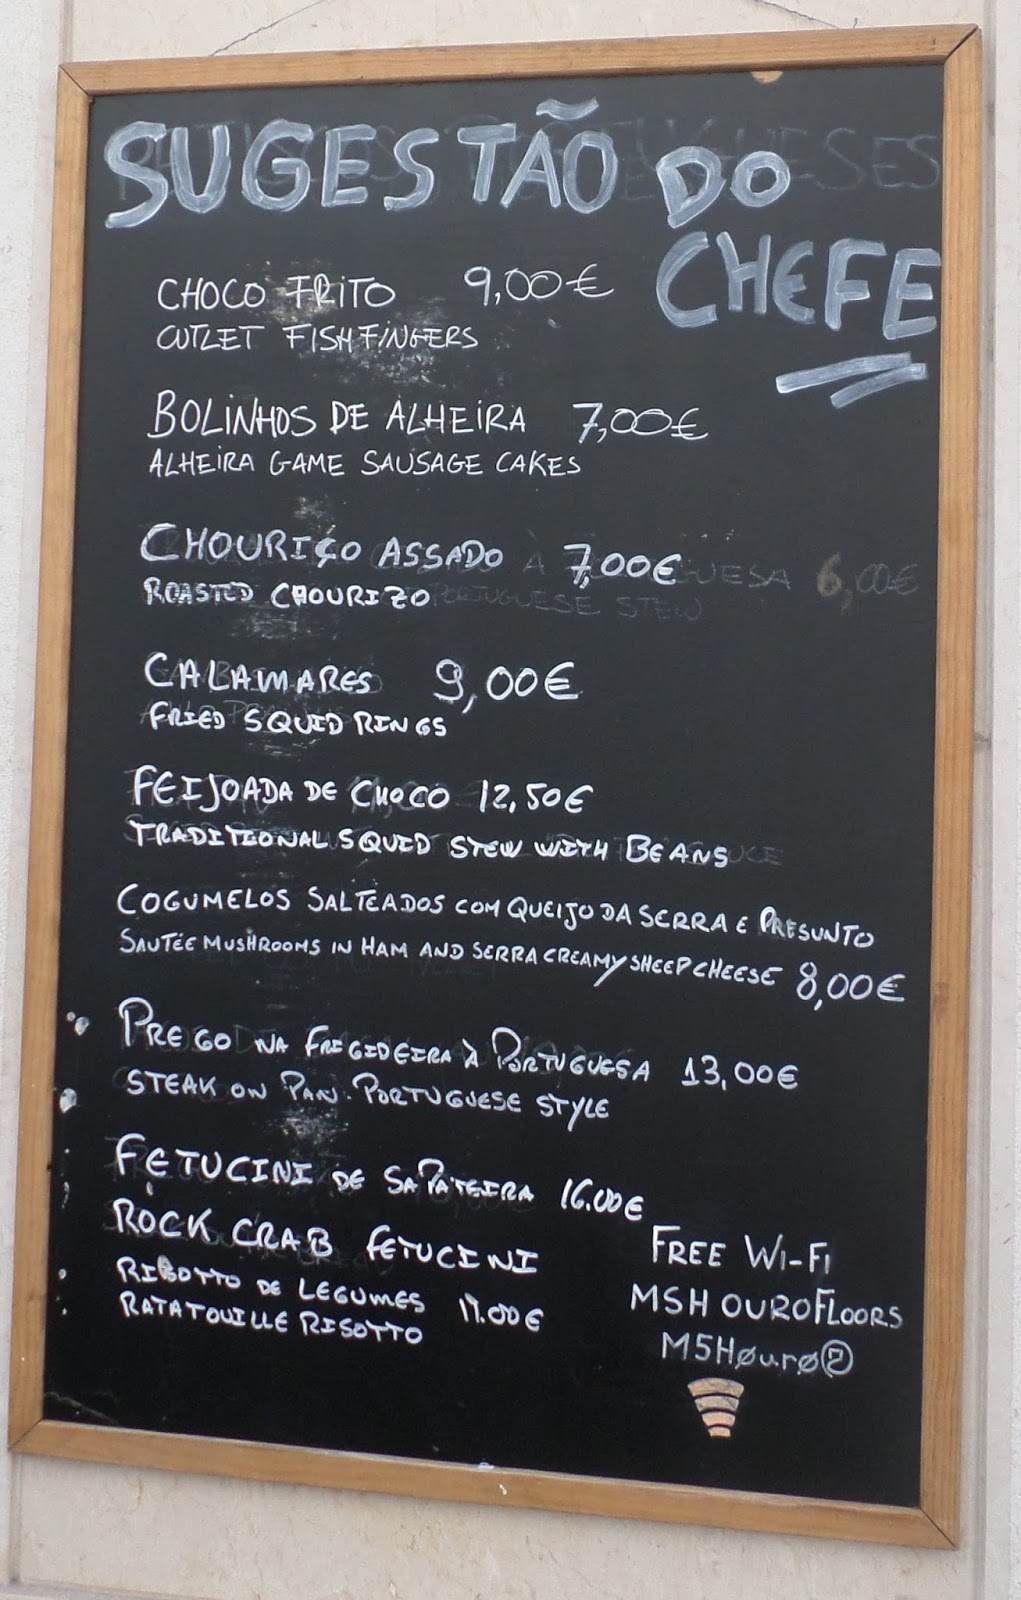 SUGESTÃO DO
CHEFE
CHOCO FRITO 9,00€
CUTLET FISHFINGERS
BOLINHOS DE ALHEIRA 7,00€
ALHEIRA GAME SAUSAGE CAKES
CHOURIÇO ASSADO 7,00€
ROASTED CHOURIZO
CALAMARES 9,00€
FRIED SQUID RINGS
FEIJOADA DE CHOCO 12,50€
TRADITIONAL SQUID STEW WITH BEANS
COGUMELOS SALTEADOS COM QUEIJO DA SERRA E PRESUNTO
SAUTÉE MUSHROOMS IN HAM AND SERRA CREAMY SHEEP CHEESE 8,00€
PREGO NA FRIGIDEIRA À PORTUGUESA 13,00€
STEAK ON PAN. PORTUGUESE STYLE
FETUCINI DE SAPATEIRA 16.00€
ROCK CRAB FETUCINI
RISOTTO DE LEGUMES 11.00€
RATATOUILLE RISOTTO
FREE WI-FI
MSH OUROFLOORS
M5Høurø②